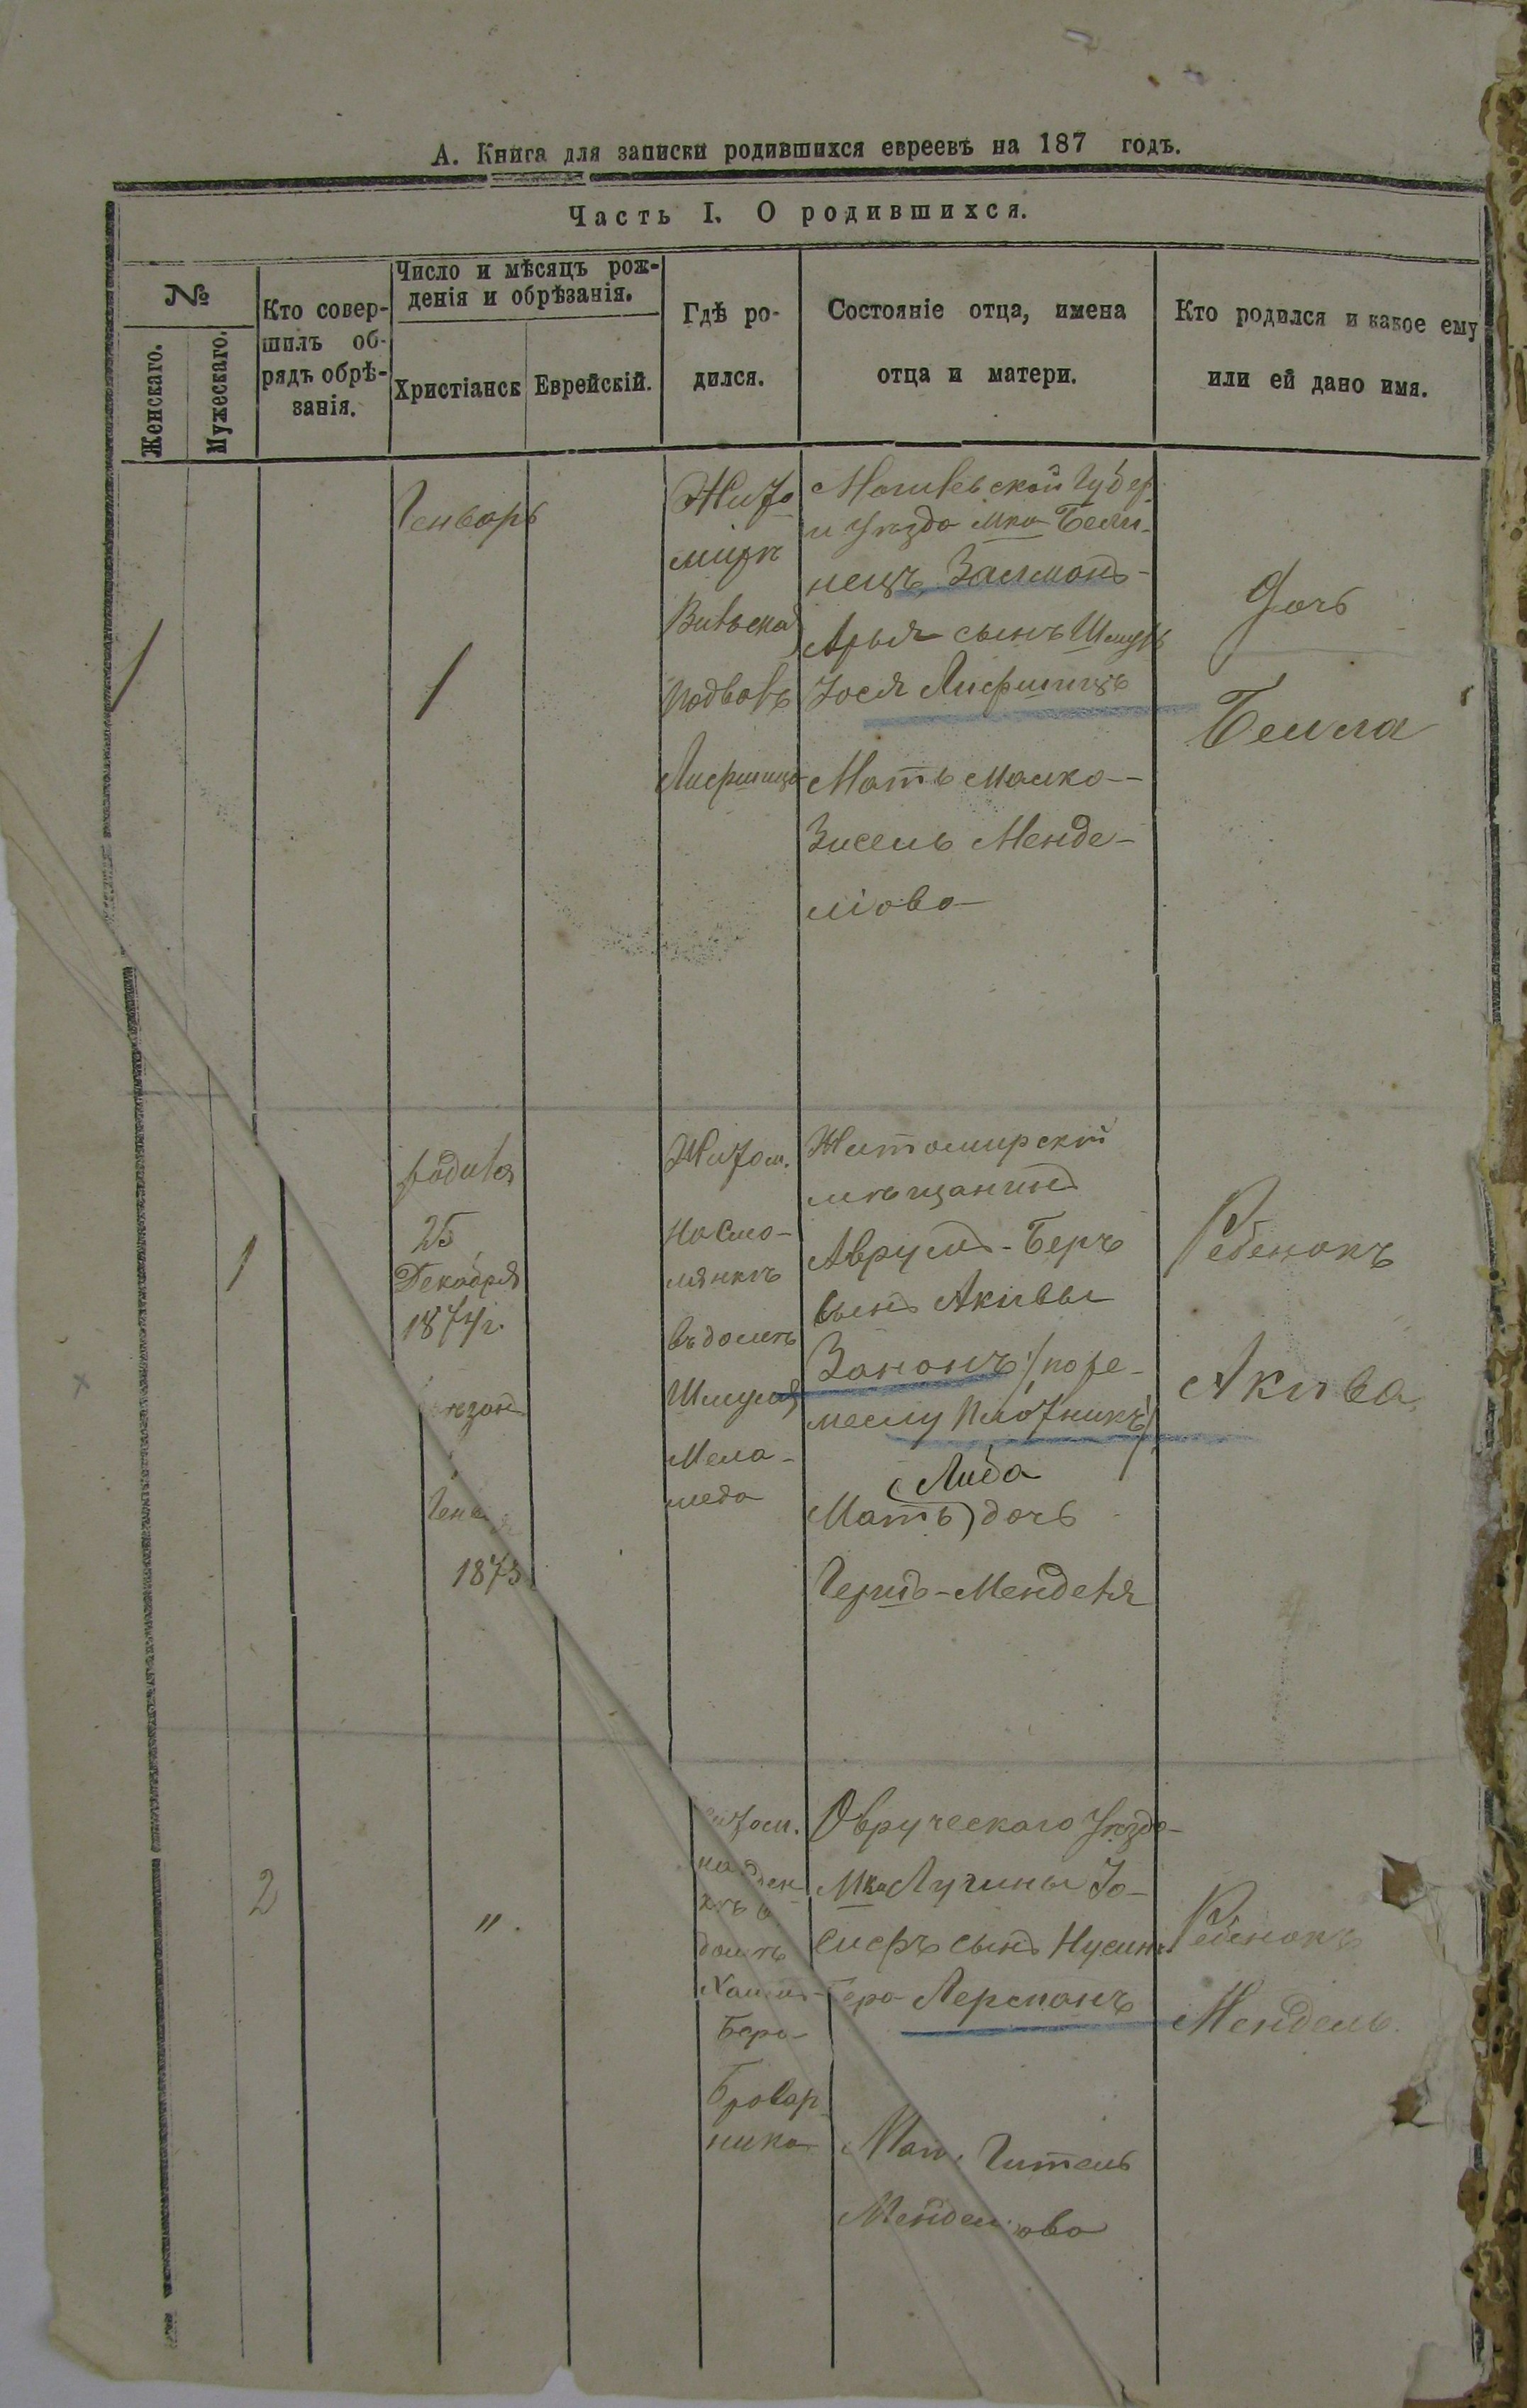 А. Книга для записки родившихся евреевъ на 187 годъ.
Часть I. О родившихся.
№
Женскаго.
Мужескаго.
Кто совер-
шилъ об-
рядъ обрѣ-
занія.
Число и мѣсяцъ рож-
денія и обрѣзанія.
Христіанск
Еврейскій.
Гдѣ ро-
дился.
Состояніе отца, имена
отца и матери.
Кто родился и какое ему
или ей дано имя.
1
Генварь
1
Жито
миръ
подвовъ
Лифшица
Могилевской Губер.
и Уѣзда мка Бели-
нецъ Залмонъ-
Арья сынъ Шмуль
Іося Лифшицъ
Мать Малка-
Зисель Менде-
ліова
Дочь
Бейла
1
родился
25
Декабря
1874 г.
1875
Житом.
въ домѣ
Шмуля
Мела-
меда
Житомирскій
мѣщанинъ
Аврумъ-Беръ
сынъ Акивы
Зононъ (по ре-
меслу Плотникъ)
Либа
Мать дочь
Герша-Менделя
Ребенокъ
Акива
2
"
домѣ
Хаима-
Бера-
Бровар
ника
Овруческаго Уѣзда-
Мка Лугины Іо-
сифъ сынъ Нусин
Бера Лерманъ
Мать Гитель
Менделіова
Ребенокъ
Мендель.